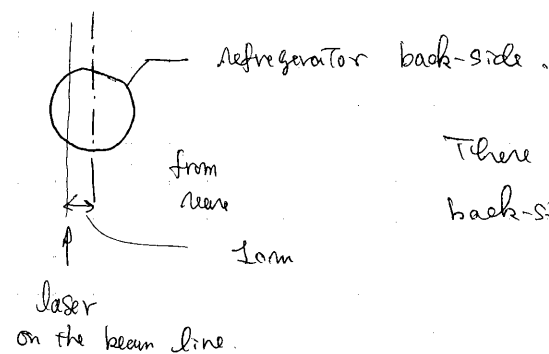 refregerator back-side.
There
back-si
from
rear
1cm
laser
on the beam line.